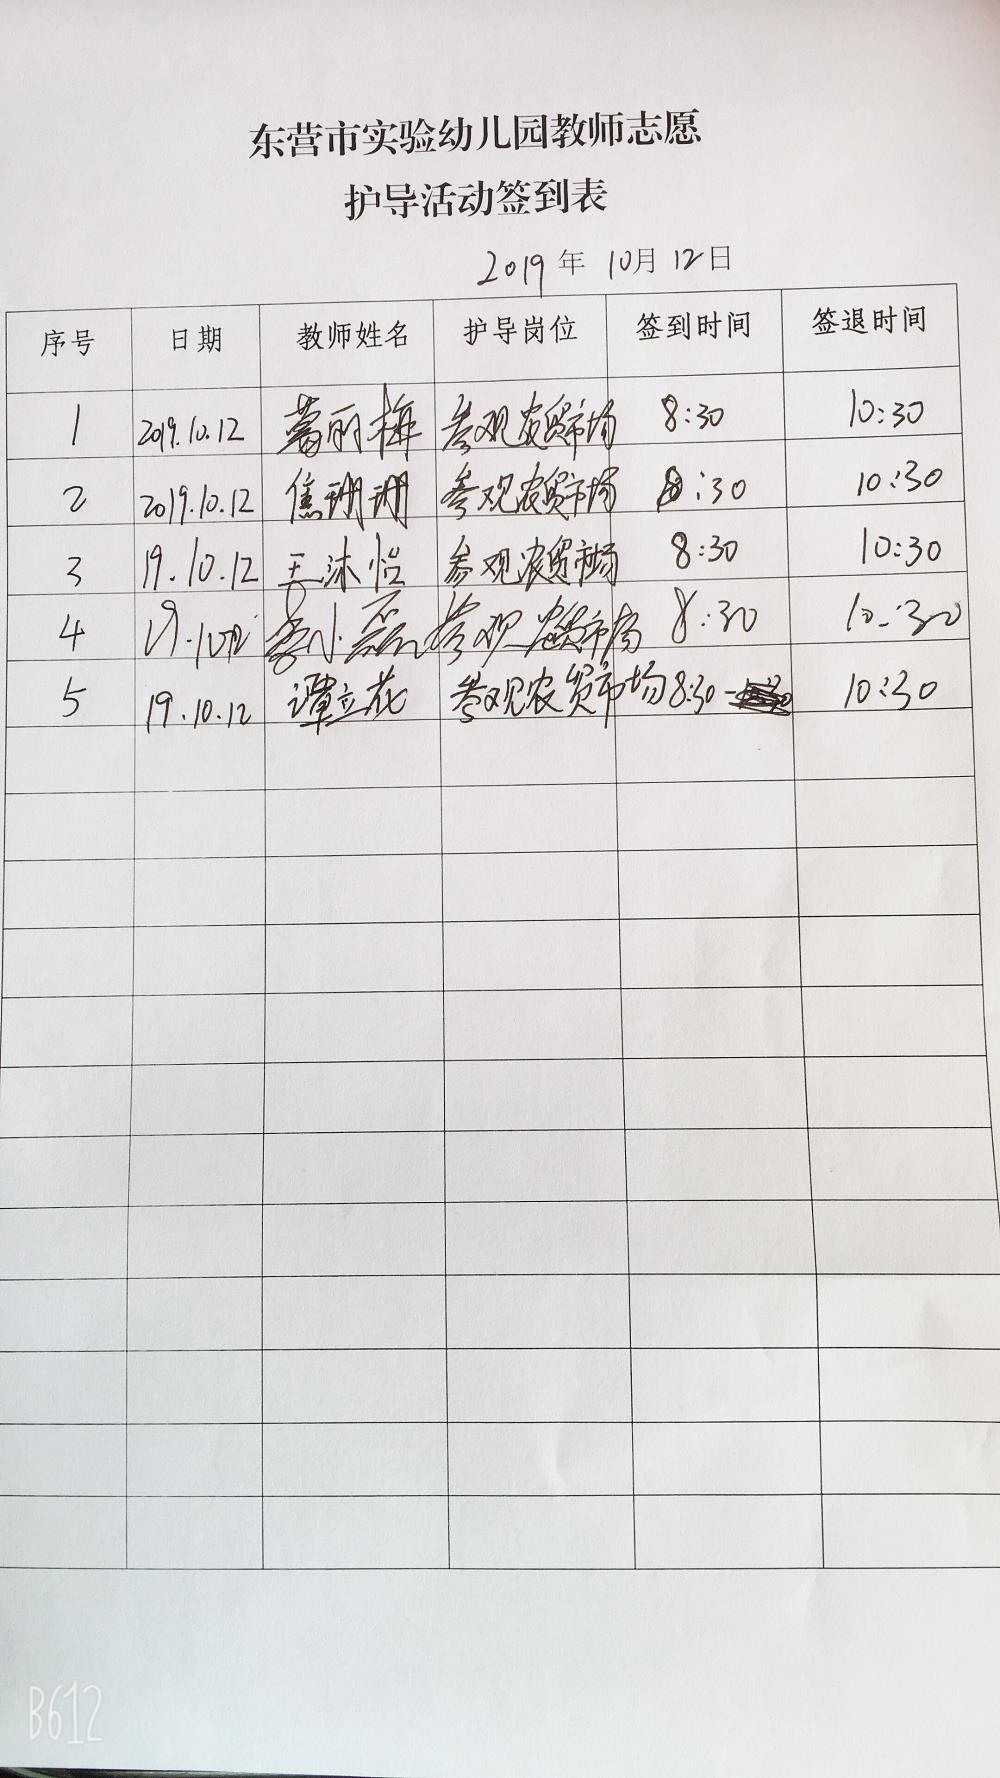 东营市实验幼儿园教师志愿
护导活动签到表
2019年 10月 12日
序号 日期 教师姓名 护导岗位 签到时间 签退时间
1 2019.10.12 葛丽梅 参观农贸市场 8:30 10:30
2 2019.10.12 焦珊珊 参观农贸市场 8:30 10:30
3 19.10.12 王沐怡 参观农贸市场 8:30 10:30
4 19.10.12 李小磊 参观农贸市场 8:30 10:30
5 19.10.12 谭立花 参观农贸市场 8:30 10:30
B612